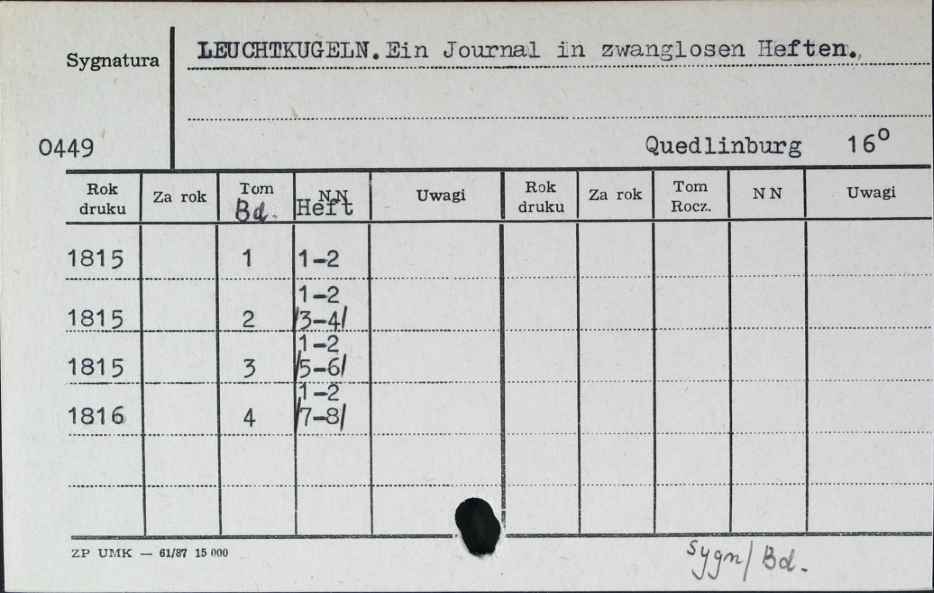 Sygnatura
LEUCHTKUGELN. Ein Journal in zwanglosen Heften.,
0449
Quedlinburg 16°
Rok druku Za rok Tom Bd. NN Heft Uwagi Rok druku Za rok Tom Rocz. NN Uwagi
1815 1 1-2
1-2
1815 2 /3-4/
1-2
1815 3 /5-6/
1-2
1816 4 /7-8/
ZP UMK — 61/87 15 000
sygn/Bd.